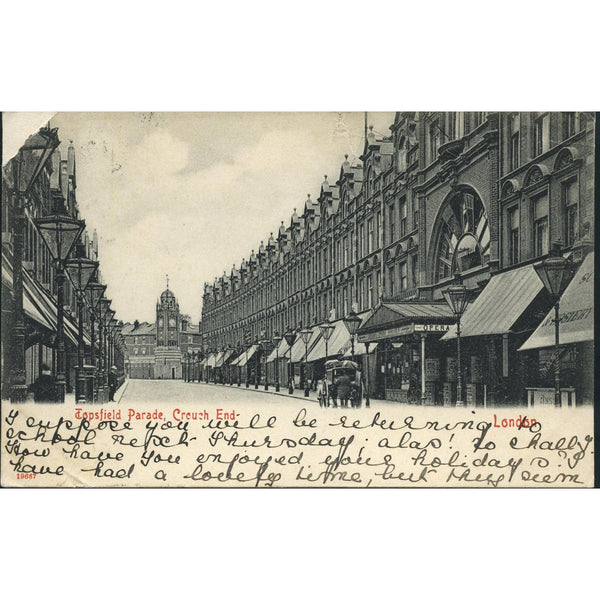 OPERA
Topsfield Parade, Crouch End
London
I suppose you will be returning to
school next Thursday; alas! to challz.
How have you enjoyed your holidays? I
have had a lovely time, but they seem
19687